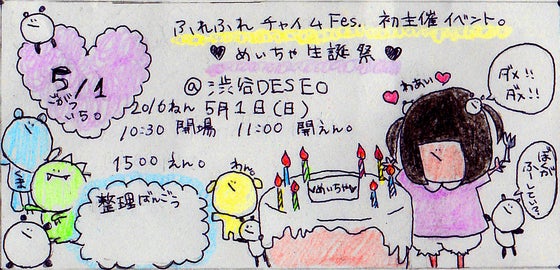 ふれふれチャイムFes. 初主催イベント。
♥めいちゃ生誕祭♥
5/1
ごがつ
いち。
@渋谷DESEO
2016ねん 5月1日(日)
10:30 開場 11:00 開えん。
1500えん。
整理ばんごう
くま
わん。
♥めいちゃ♥
わあい
ダメ!!
ダメ!!
ぼうが